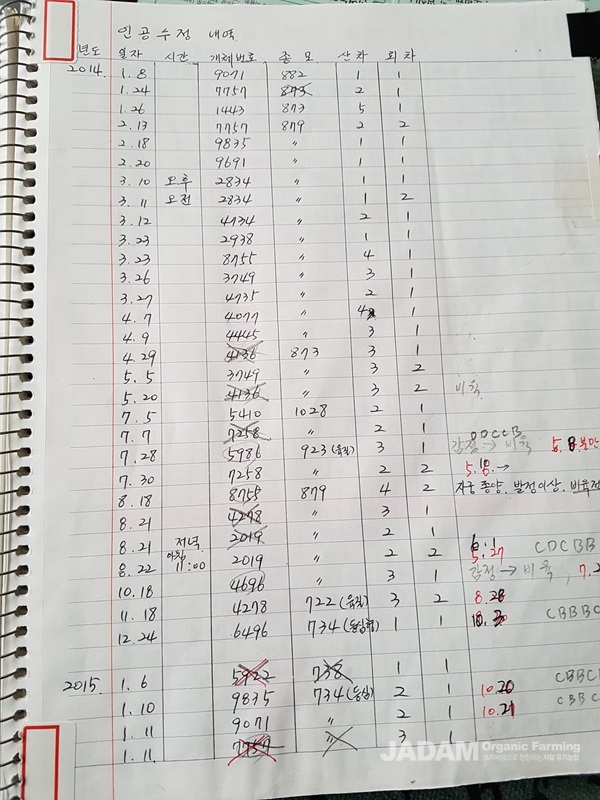 인공수정 내역
년도 일자 시간 개체번호 종모 산차 회차
2014. 1.8 9071 882 1 1
1.24 7757 873 2 1
1.26 1443 873 5 1
2.13 7757 879 2 2
2.18 9835 〃 1 1
2.20 9691 〃 1 1
3.10 오후 2834 〃 1 1
3.11 오전 2834 〃 1 2
3.12 4734 〃 2 1
3.23 2938 〃 1 1
3.23 8755 〃 4 1
3.26 3749 〃 3 1
3.27 4735 〃 2 1
4.7 4077 〃 4 1
4.9 4445 〃 3 1
4.29 4136 873 3 1
5.5 3749 〃 3 2
5.20 4136 〃 3 2 비육
7.5 5410 1028 2 1
7.7 7258 〃 2 1
7.28 5986 923 3 1 감정→비육
7.30 7258 〃 2 2 5.10.→
8.18 8755 879 4 2 자궁종양, 발정이상, 비육
8.21 4278 3 1
8.21 저녁 2019 2 1 6.1
8.22 아침 11:00 2019 2 2 5.27 CDCBB
10.18 4696 3 1 감정→비육, 7.2
11.18 4278 722 3 2 8.28
12.24 6496 734 1 1 CBBBC
2015. 1.6 5922 738 1 1
1.10 9835 734 2 1 10.20 CBBC
1.11 9071 〃 2 1 10.21 CBBC
1.11. 7757 〃 3 1
JADAM Organic Farming